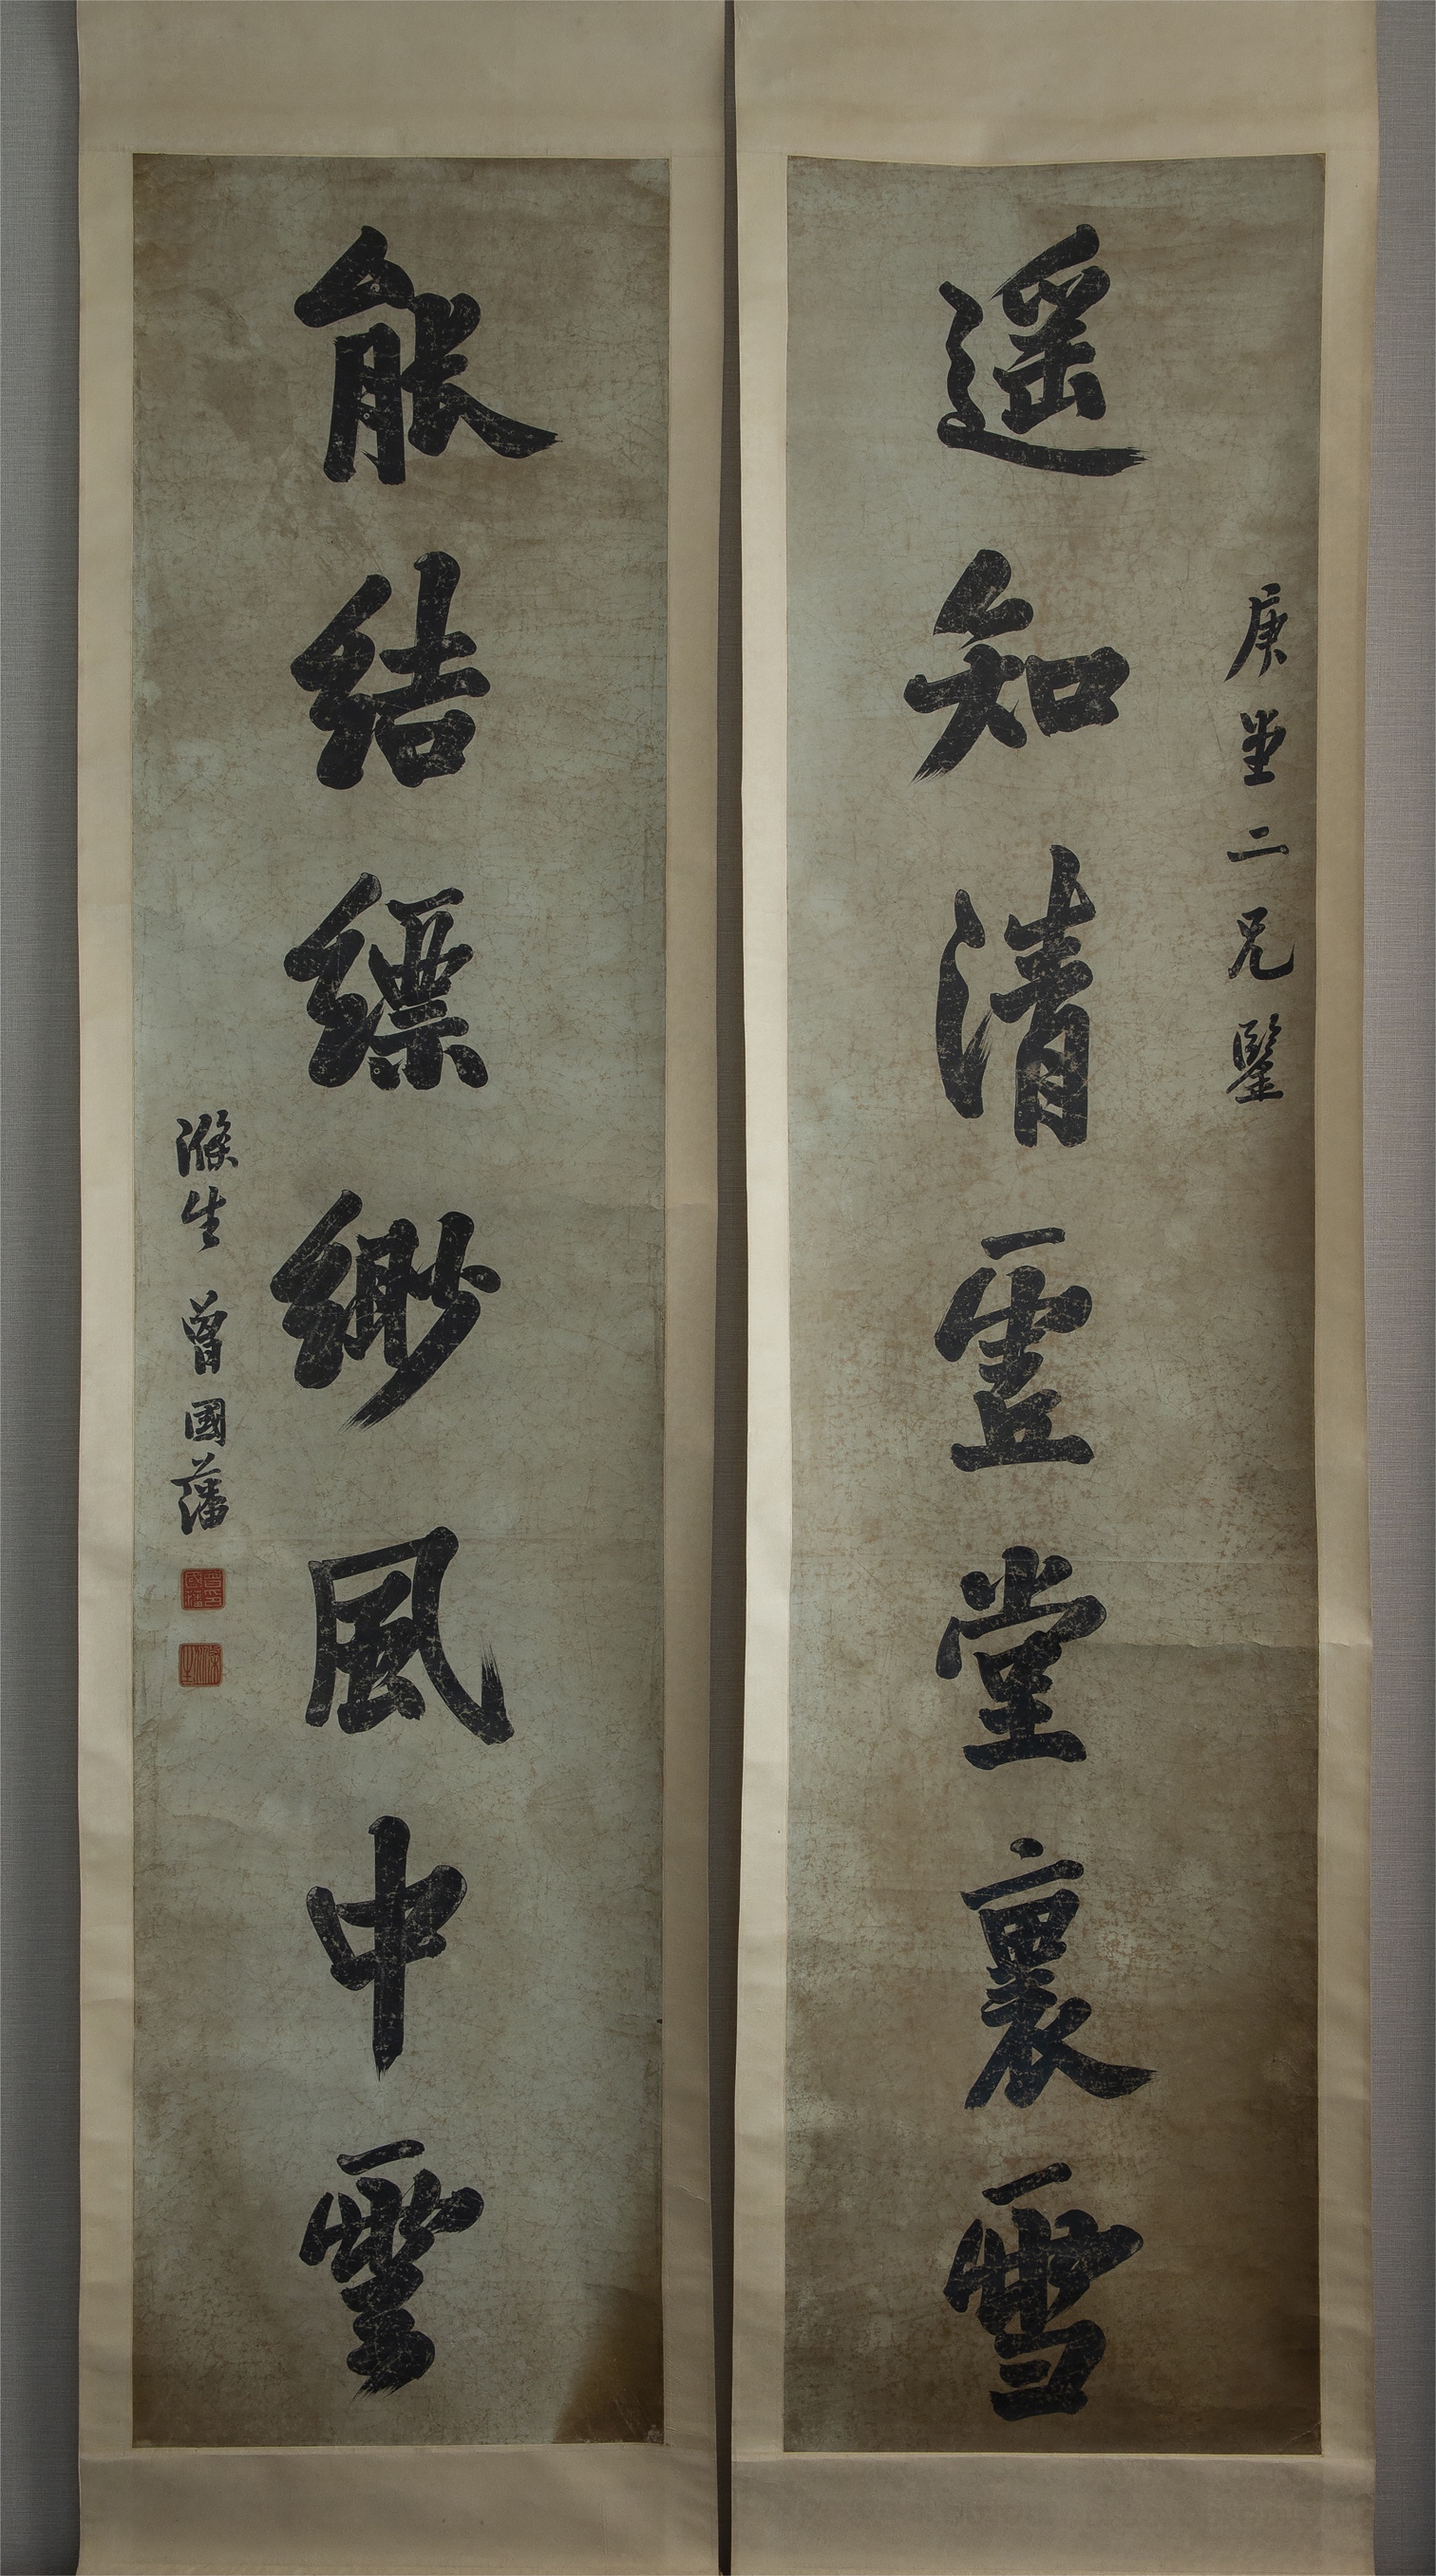 庚堂二兄鑒
遥知清虛堂裏雪
能結縹緲風中雲
滌生曾國藩